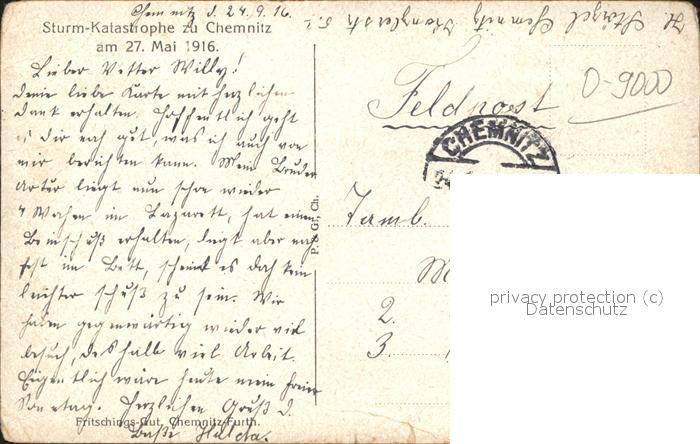 Chemnitz d. 24.9.16.
Sturm-Katastrophe zu Chemnitz
am 27. Mai 1916.
Lieber Vetter Willy!
Deine liebe Karte mit herzlichem
Dank erhalten. Hoffentlich geht
es dir noch gut, was ich auch von
mir berichten kann. Mein Bruder
Artur liegt nun schon wieder
4 Wochen im Lazarett, hat einen
Beinschuß erhalten, liegt aber noch
fest im Bett, scheint es doch kein
leichter schuß zu sein. Wir
haben gegenwärtig wieder viel
besuch, deshalb viel Arbeit.
Eigentlich wäre heute mein freier
Sonntag. Herzlichen Gruß d.
Fritschings-Gut, Chemnitz-Furth.
Base Hulda.
P. & G., Ch.
Chemnitz
Feldpost
O-9000
CHEMNITZ
Tamb.
M
2.
3.
privacy protection (c)
Datenschutz